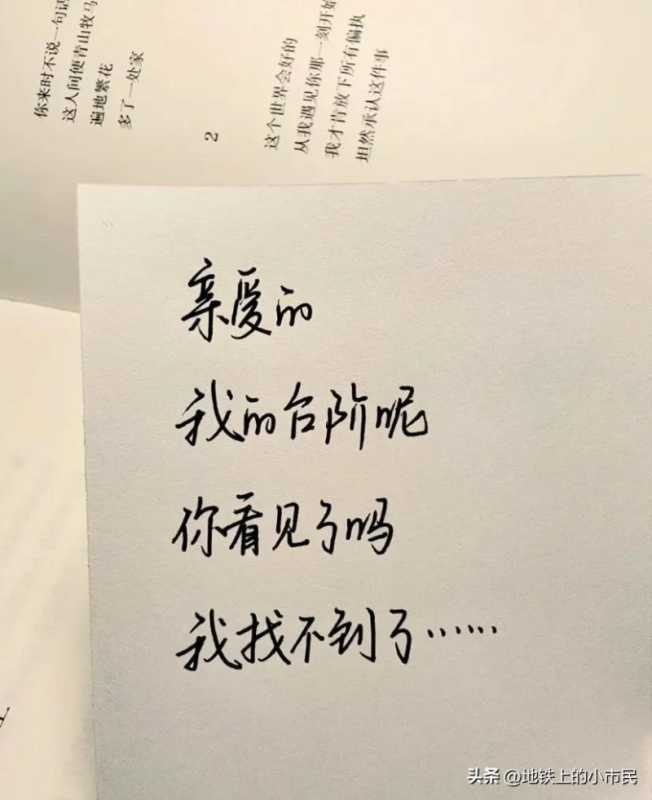 你来时不说一句话
这人间便青山牧马
遍地繁花
多了一处家
2
这个世界会好的
从我遇见你那一刻开始
我才肯放下所有偏执
坦然承认这件事
亲爱的
我的台阶呢
你看见了吗
我找不到了……
头条 @地铁上的小市民